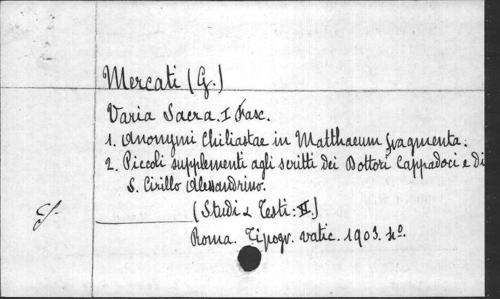 Mercati (G.)
Varia Sacra. I Fasc.
1. Anonymi Chiliastae in Matthaeum fragmenta.
2. Piccoli supplementi agli scritti dei Dottori Cappadoci e di
S. Cirillo Alessandrino.
(Studi & Testi: II.)
Roma. Tipogr. vatic. 1903. 4o.